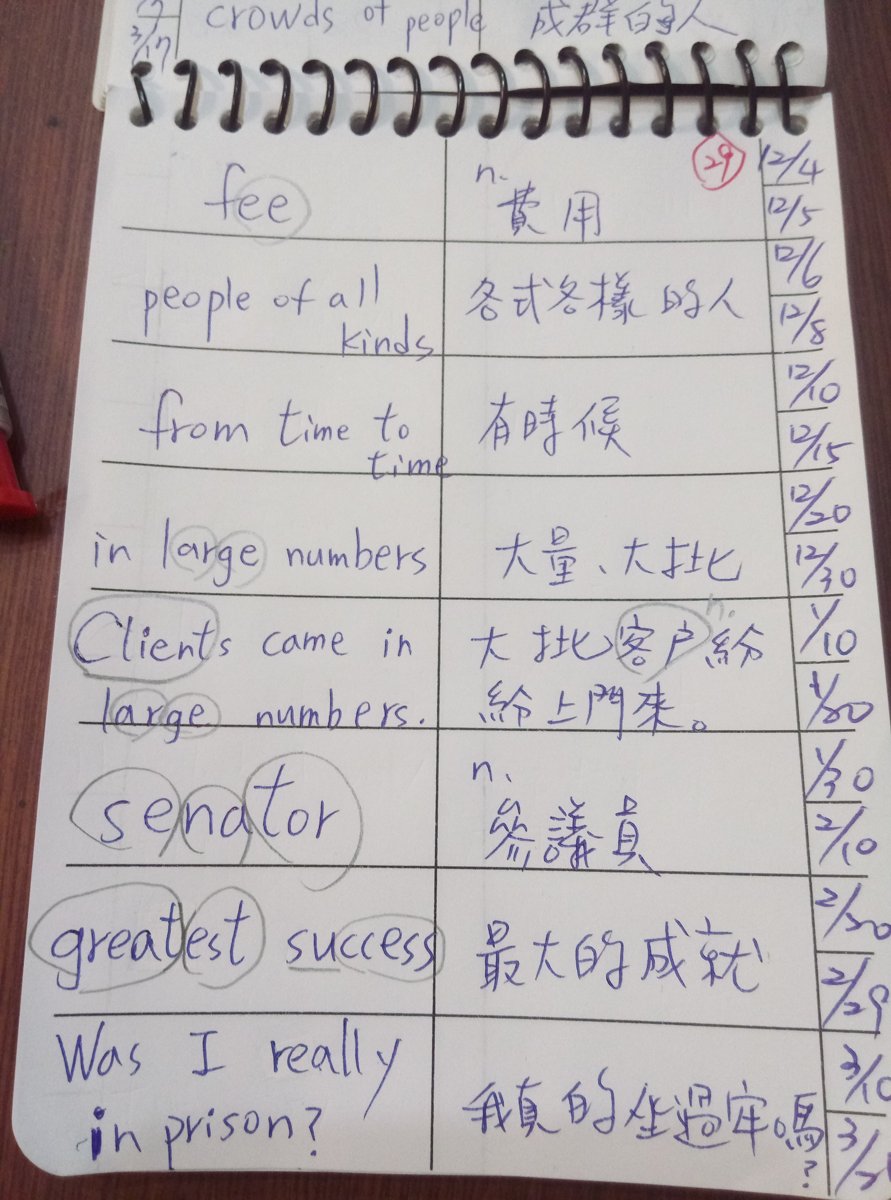 3/17
crowds of people 成群的人
fee n. 費用 29 12/4
12/5
people of all 各式各樣的人 12/6
kinds 12/8
from time to 有時候 12/10
time 12/15
in large numbers 大量、大批 12/20
12/30
Clients came in 大批客户紛 n. 1/10
large numbers. 紛上門來。 1/20
senator n. 參議員 1/30
2/10
greatest success 最大的成就 2/20
2/29
Was I really 我真的坐過牢嗎? 3/10
in prison?